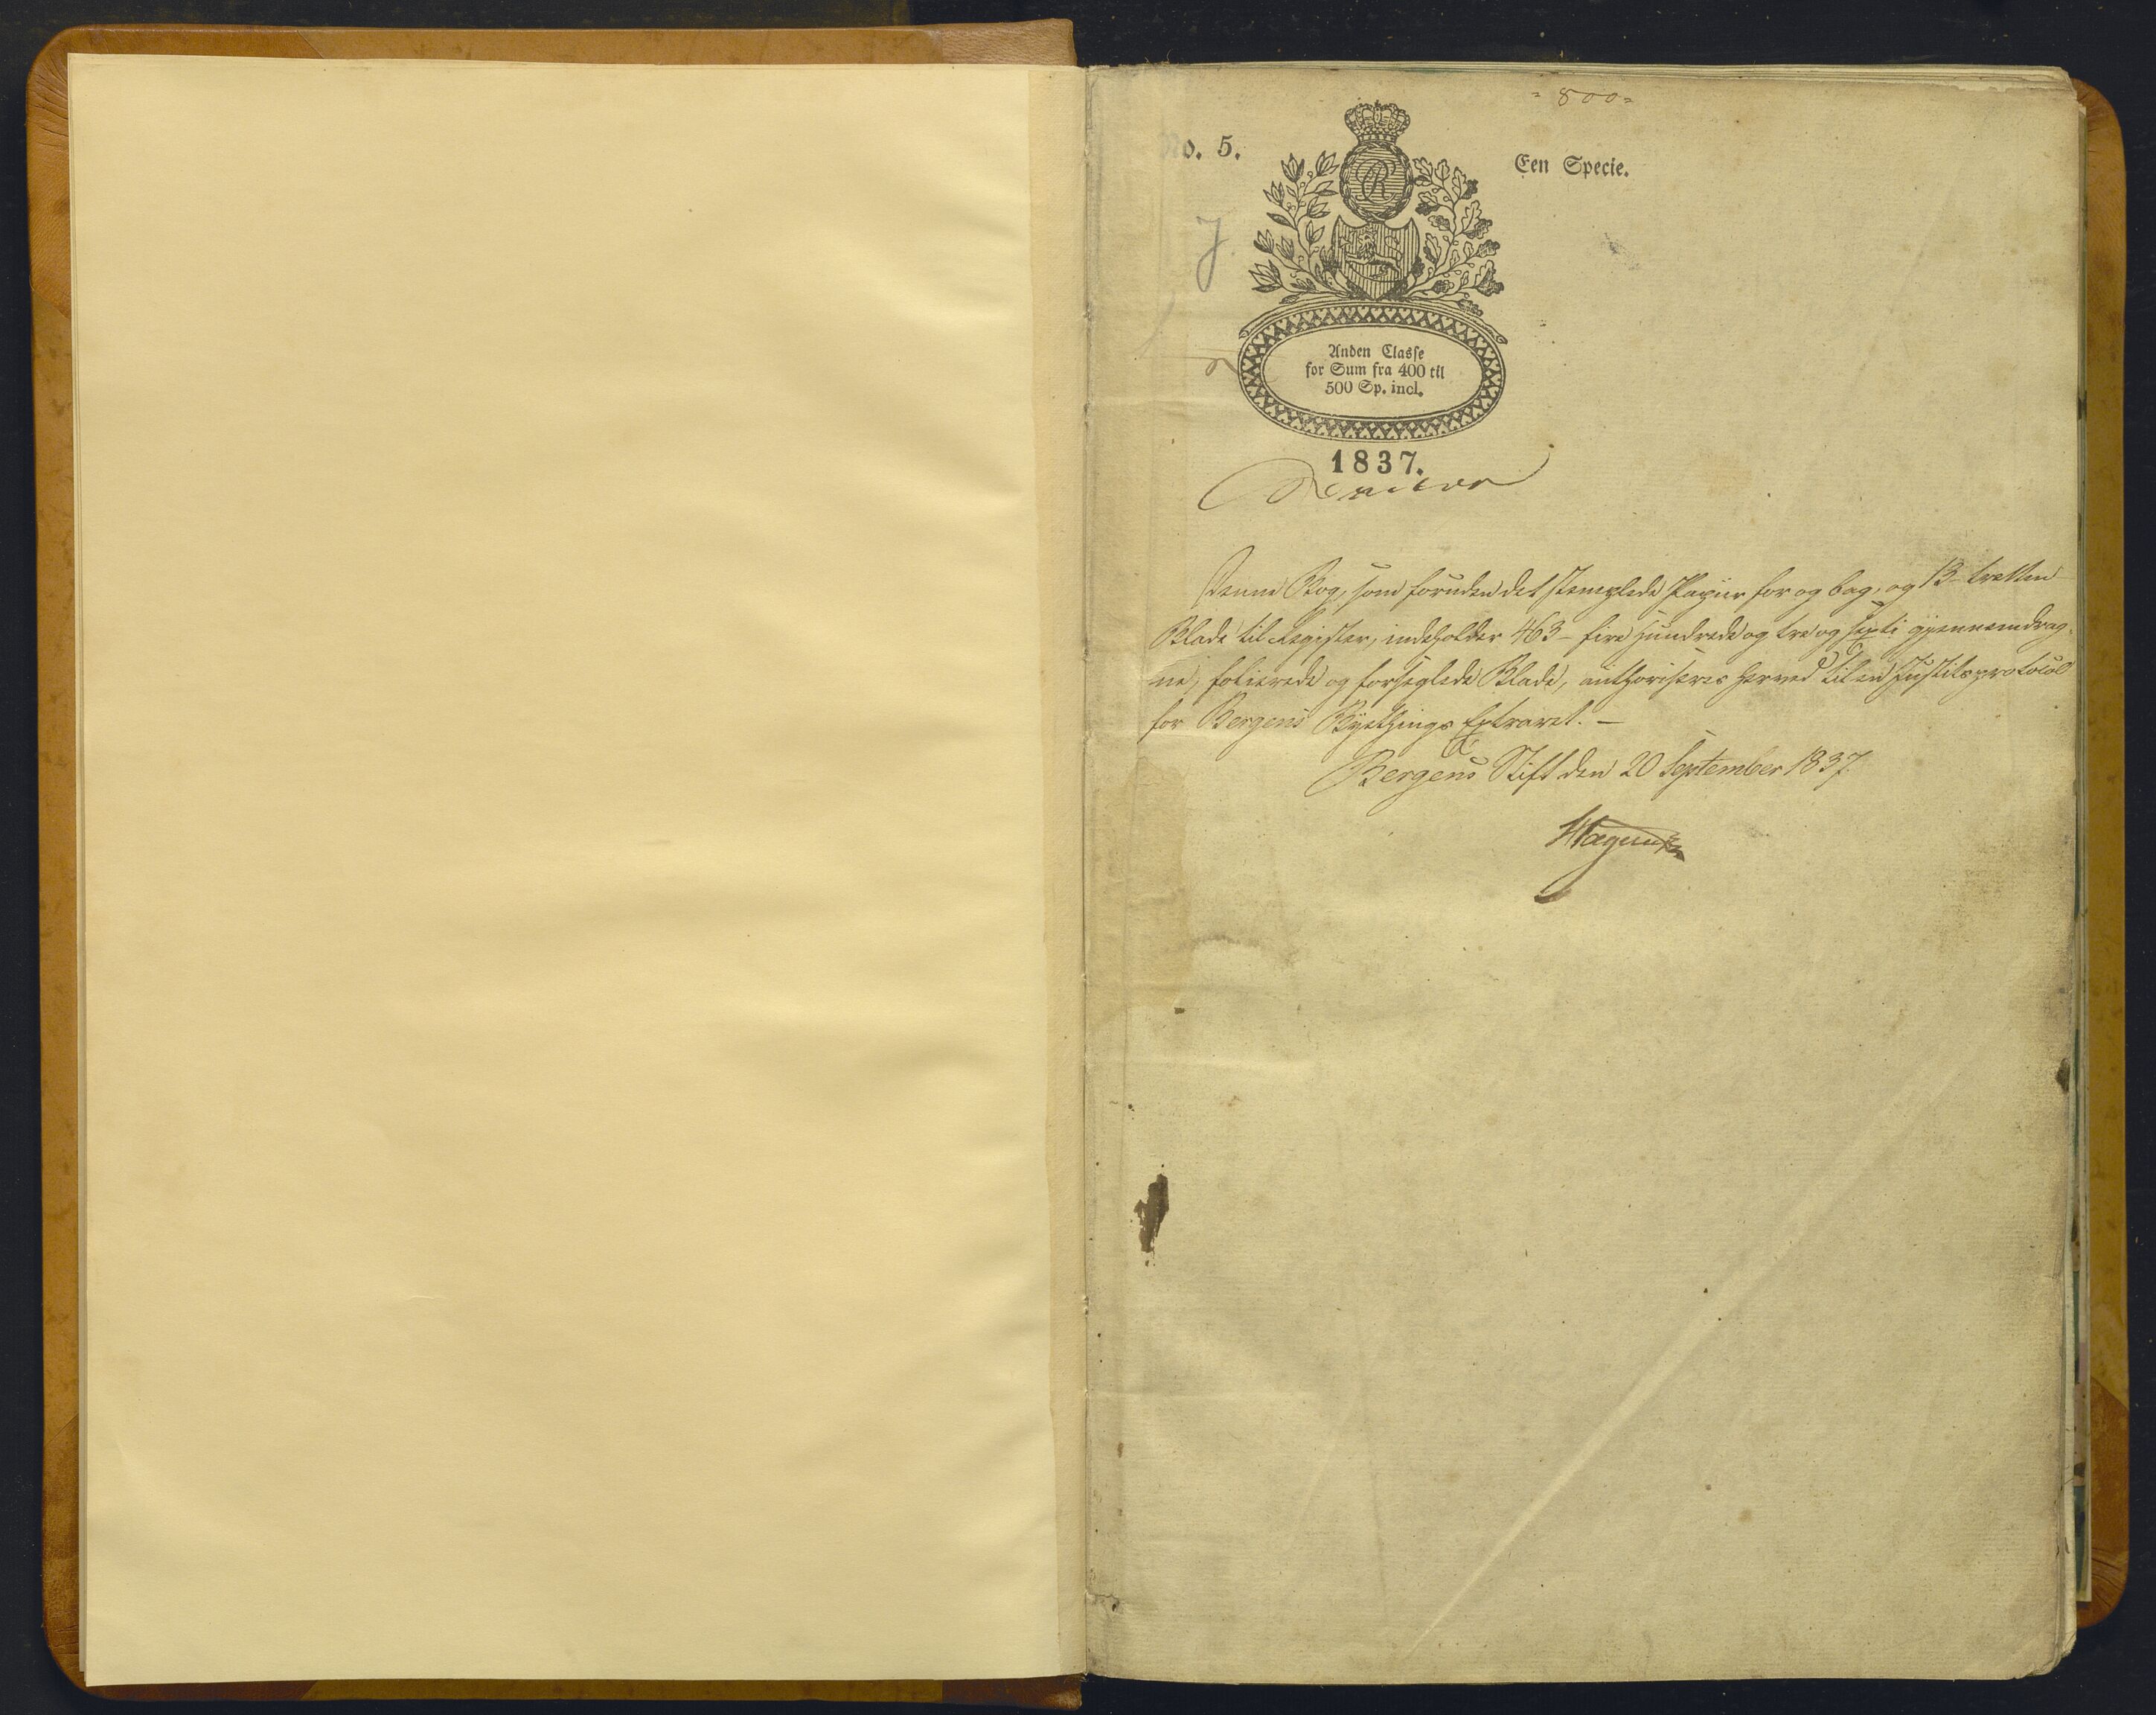 = 800 =
No. 5.
Een Specie.
J.
Anden Classe
for Sum fra 400 til
500 Sp. incl.
1837.
Denne Bog, som foruden det stemplede Papiir for og bag, og 13 - tretten
Blade til Register, indeholder 463 - fire hundrede og tre og sexti gjennemdrag-
ne, folierede og forseglede Blade, authoriseres herved til en Justitsprotocol
for Bergens Byethings Extraret. -
Bergens Stift den 20 September 1837.